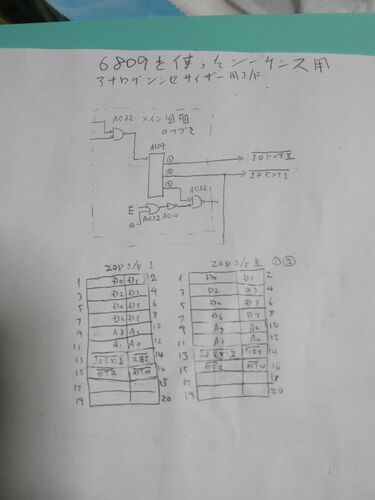 6809を使ったシーケンス用
アナログシンセサイザー用I/F
AC32 メイン回路
のつづき
①
②
③
AC32
E
AC32 AC14
20P I/F I
1 D0 D1 2
3 D2 D3 4
5 D4 D5 6
7 D6 D7 8
9 A3 A2 10
11 A1 A0 12
13 14
15 16
17
19 20
20P I/F II ① ②
1 D0 D1 2
3 D2 D3 4
5 D4 D5 6
7 D6 D7 8
9 A3 A2 10
11 A1 A0 12
13 14
15 16
17 18
19 20